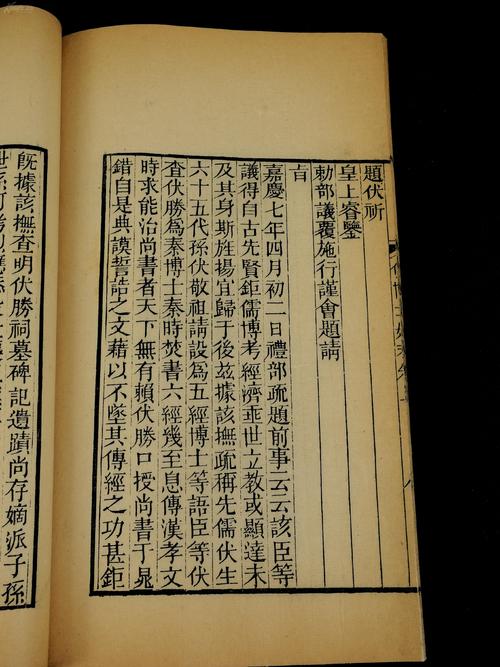 題伏祈
皇上睿鑒
勅部議覆施行謹會題請
旨
嘉慶七年四月初二日禮部疏題前事云云該臣等
議得自古先賢鉅儒博考經濟垂世立教或顯達未
及其身斯旌揚宜歸于後茲據該撫疏稱先儒伏生
六十五代孫伏敬祖請設爲五經博士等語臣等伏
查伏勝爲秦博士秦時焚書六經幾至息傳漢孝文
時求能治尚書者天下無有賴伏勝口授尚書于晁
錯自是典謨誓誥之文藉以不墜其傳經之功甚鉅
既據該撫查明伏勝祠墓碑記遺蹟尚存嫡派子孫